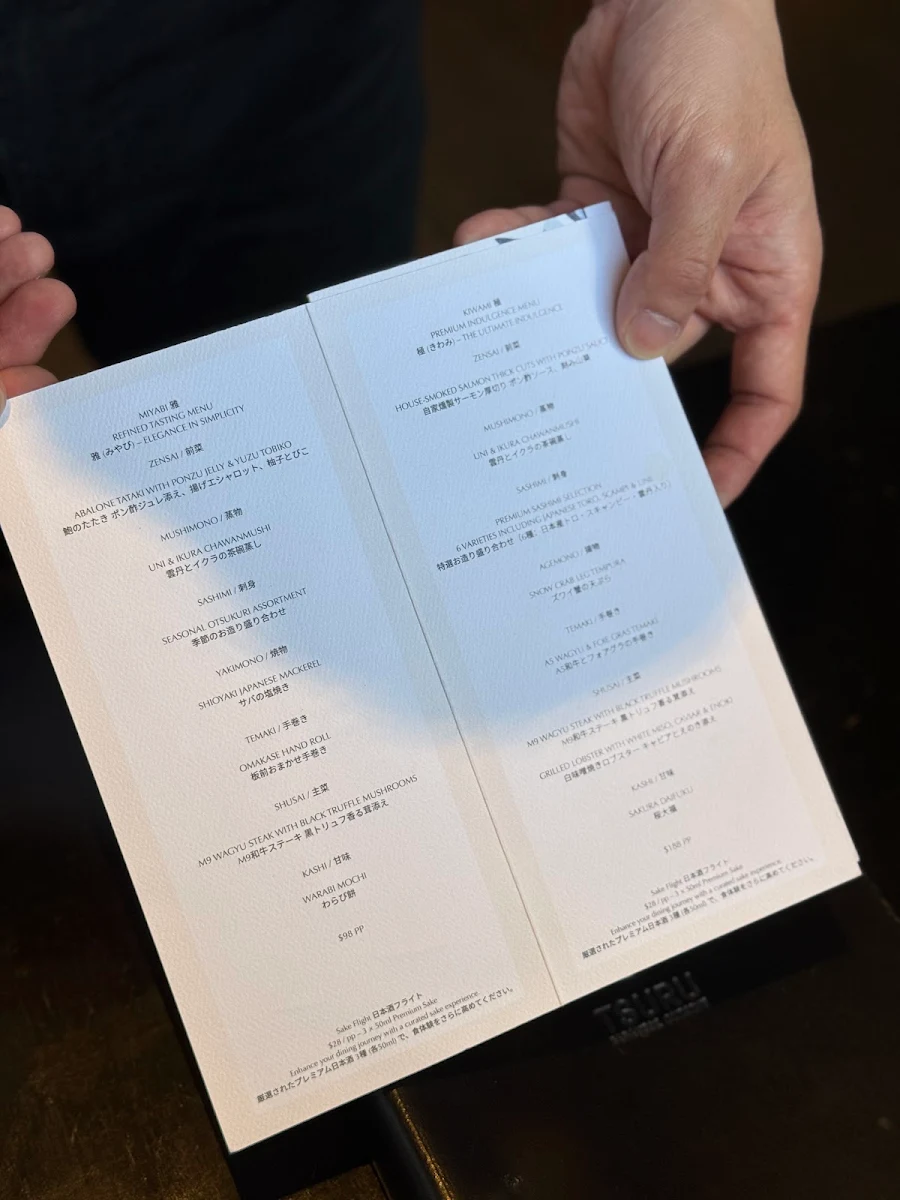 MIYABI 雅
REFINED TASTING MENU
雅 (みやび) – ELEGANCE IN SIMPLICITY
ZENSAI / 前菜
ABALONE TATAKI WITH PONZU JELLY & YUZU TOBIKO
鮑のたたき ポン酢ジュレ添え、揚げエシャロット、柚子とびこ
MUSHIMONO / 蒸物
UNI & IKURA CHAWANMUSHI
雲丹とイクラの茶碗蒸し
SASHIMI / 刺身
SEASONAL OTSUKURI ASSORTMENT
季節のお造り盛り合わせ
YAKIMONO / 焼物
SHIOYAKI JAPANESE MACKEREL
サバの塩焼き
TEMAKI / 手巻き
OMAKASE HAND ROLL
板前おまかせ手巻き
SHUSAI / 主菜
M9 WAGYU STEAK WITH BLACK TRUFFLE MUSHROOMS
M9和牛ステーキ 黒トリュフ香る茸添え
KASHI / 甘味
WARABI MOCHI
わらび餅
$98 PP
Sake Flight 日本酒フライト
$28 / pp – 3 × 50ml Premium Sake
Enhance your dining journey with a curated sake experience.
厳選されたプレミアム日本酒 3種 (各50ml) で、食体験をさらに高めてください。
KIWAMI 極
PREMIUM INDULGENCE MENU
極 (きわみ) – THE ULTIMATE INDULGENCE
ZENSAI / 前菜
HOUSE-SMOKED SALMON THICK CUTS WITH PONZU SAUCE
自家燻製サーモン厚切り ポン酢ソース、刻み山葵
MUSHIMONO / 蒸物
UNI & IKURA CHAWANMUSHI
雲丹とイクラの茶碗蒸し
SASHIMI / 刺身
PREMIUM SASHIMI SELECTION
6 VARIETIES INCLUDING JAPANESE TORO, SCAMPI & UNI
特選お造り盛り合わせ (6種：日本産トロ・スキャンピー・雲丹入り)
AGEMONO / 揚物
SNOW CRAB LEG TEMPURA
ズワイ蟹の天ぷら
TEMAKI / 手巻き
A5 WAGYU & FOIE GRAS TEMAKI
A5和牛とフォアグラの手巻き
SHUSAI / 主菜
M9 WAGYU STEAK WITH BLACK TRUFFLE MUSHROOMS
M9和牛ステーキ 黒トリュフ香る茸添え
GRILLED LOBSTER WITH WHITE MISO, CAVIAR & ENOKI
白味噌焼きロブスター キャビアとえのき添え
KASHI / 甘味
SAKURA DAIFUKU
桜大福
$188 PP
Sake Flight 日本酒フライト
$28 / pp – 3 × 50ml Premium Sake
Enhance your dining journey with a curated sake experience.
厳選されたプレミアム日本酒 3種 (各50ml) で、食体験をさらに高めてください。
TSURU